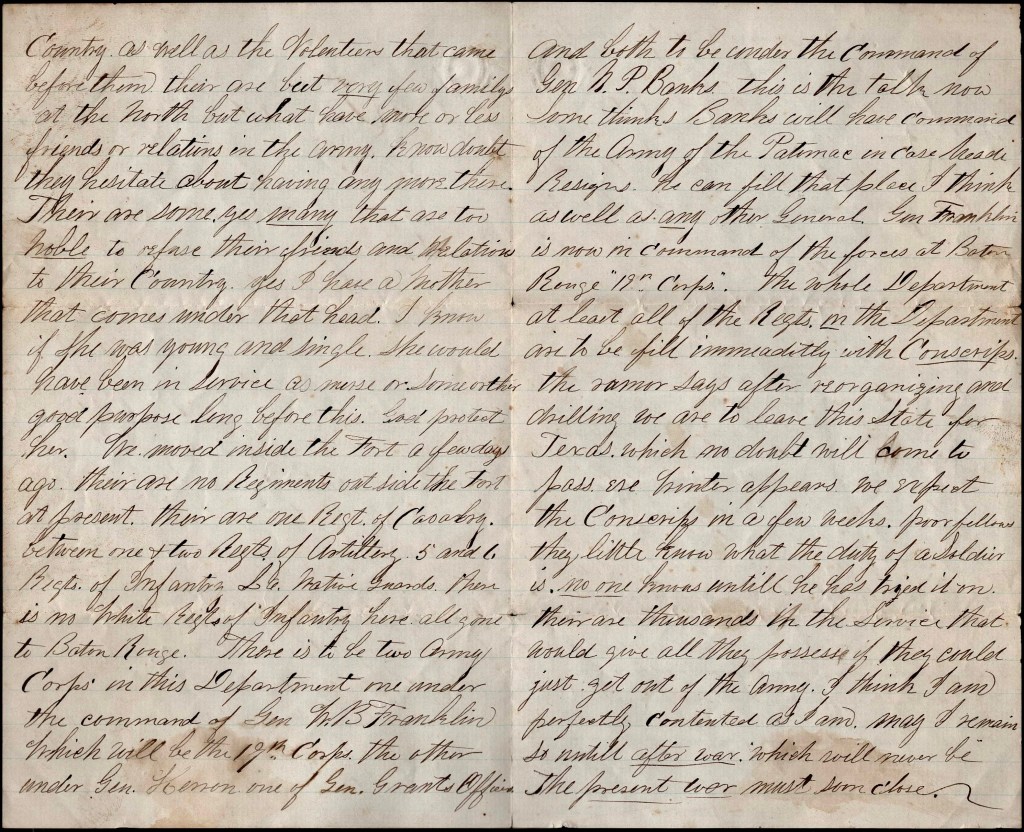 Country. as well as the Volenteers that came
before them. their are beet very few familys
at the North but what have more or less
friends or relations in the army. Know doubt
they hesitate about having any more there.
Their are some, yes many that are too
noble to refuse their friends and Relations
to their Country. yes I have a Mother
that comes under that head. I know
if She was young and single. She would
have been in Service as nurse or some other
good purpose long before this. God protect
her. We moved inside the Fort a few days
ago. their are no Regiments out side the Fort
at present. their are one Regt. of Cavalry.
between one & two Regts of Artillery. 5 and 6
Regts. of Infantry La. Native Guards. there
is no White Regts of Infantry here all gone
to Baton Rouge. There is to be two Army
Corps in this Department one under
the command of Gen W. B Franklin
Which will be the 19th Corps. the other
under Gen. Herron one of Gen. Grants Officers
and both to be under the Command of
Gen N. P. Banks. this is the talk now
Some thinks Banks will have command
of the Army of the Potomac in case Meade
Resigns. he can fill that place I think
as well as any other General. Gen Franklin
is now in command of the forces at Baton
Rouge "19th Corps". the whole Department
at least all of the Regts. in the Department
are to be fill immeaditly with Conscrips.
the rumor says after reorganizing and
drilling we are to leave this State for
Texas. which no doubt will come to
pass. ere Winter appears. we expect
the Conscrips in a few weeks. poor fellows
they little know what the duty of a Soldier
is. no one knows untill he has tryed it on.
their are thousands in the Service that
would give all they possess if they could
just get out of the Army. I think I am
perfectly contented as I am. may I remain
so untill after war. which will never be
The present war must soon close.